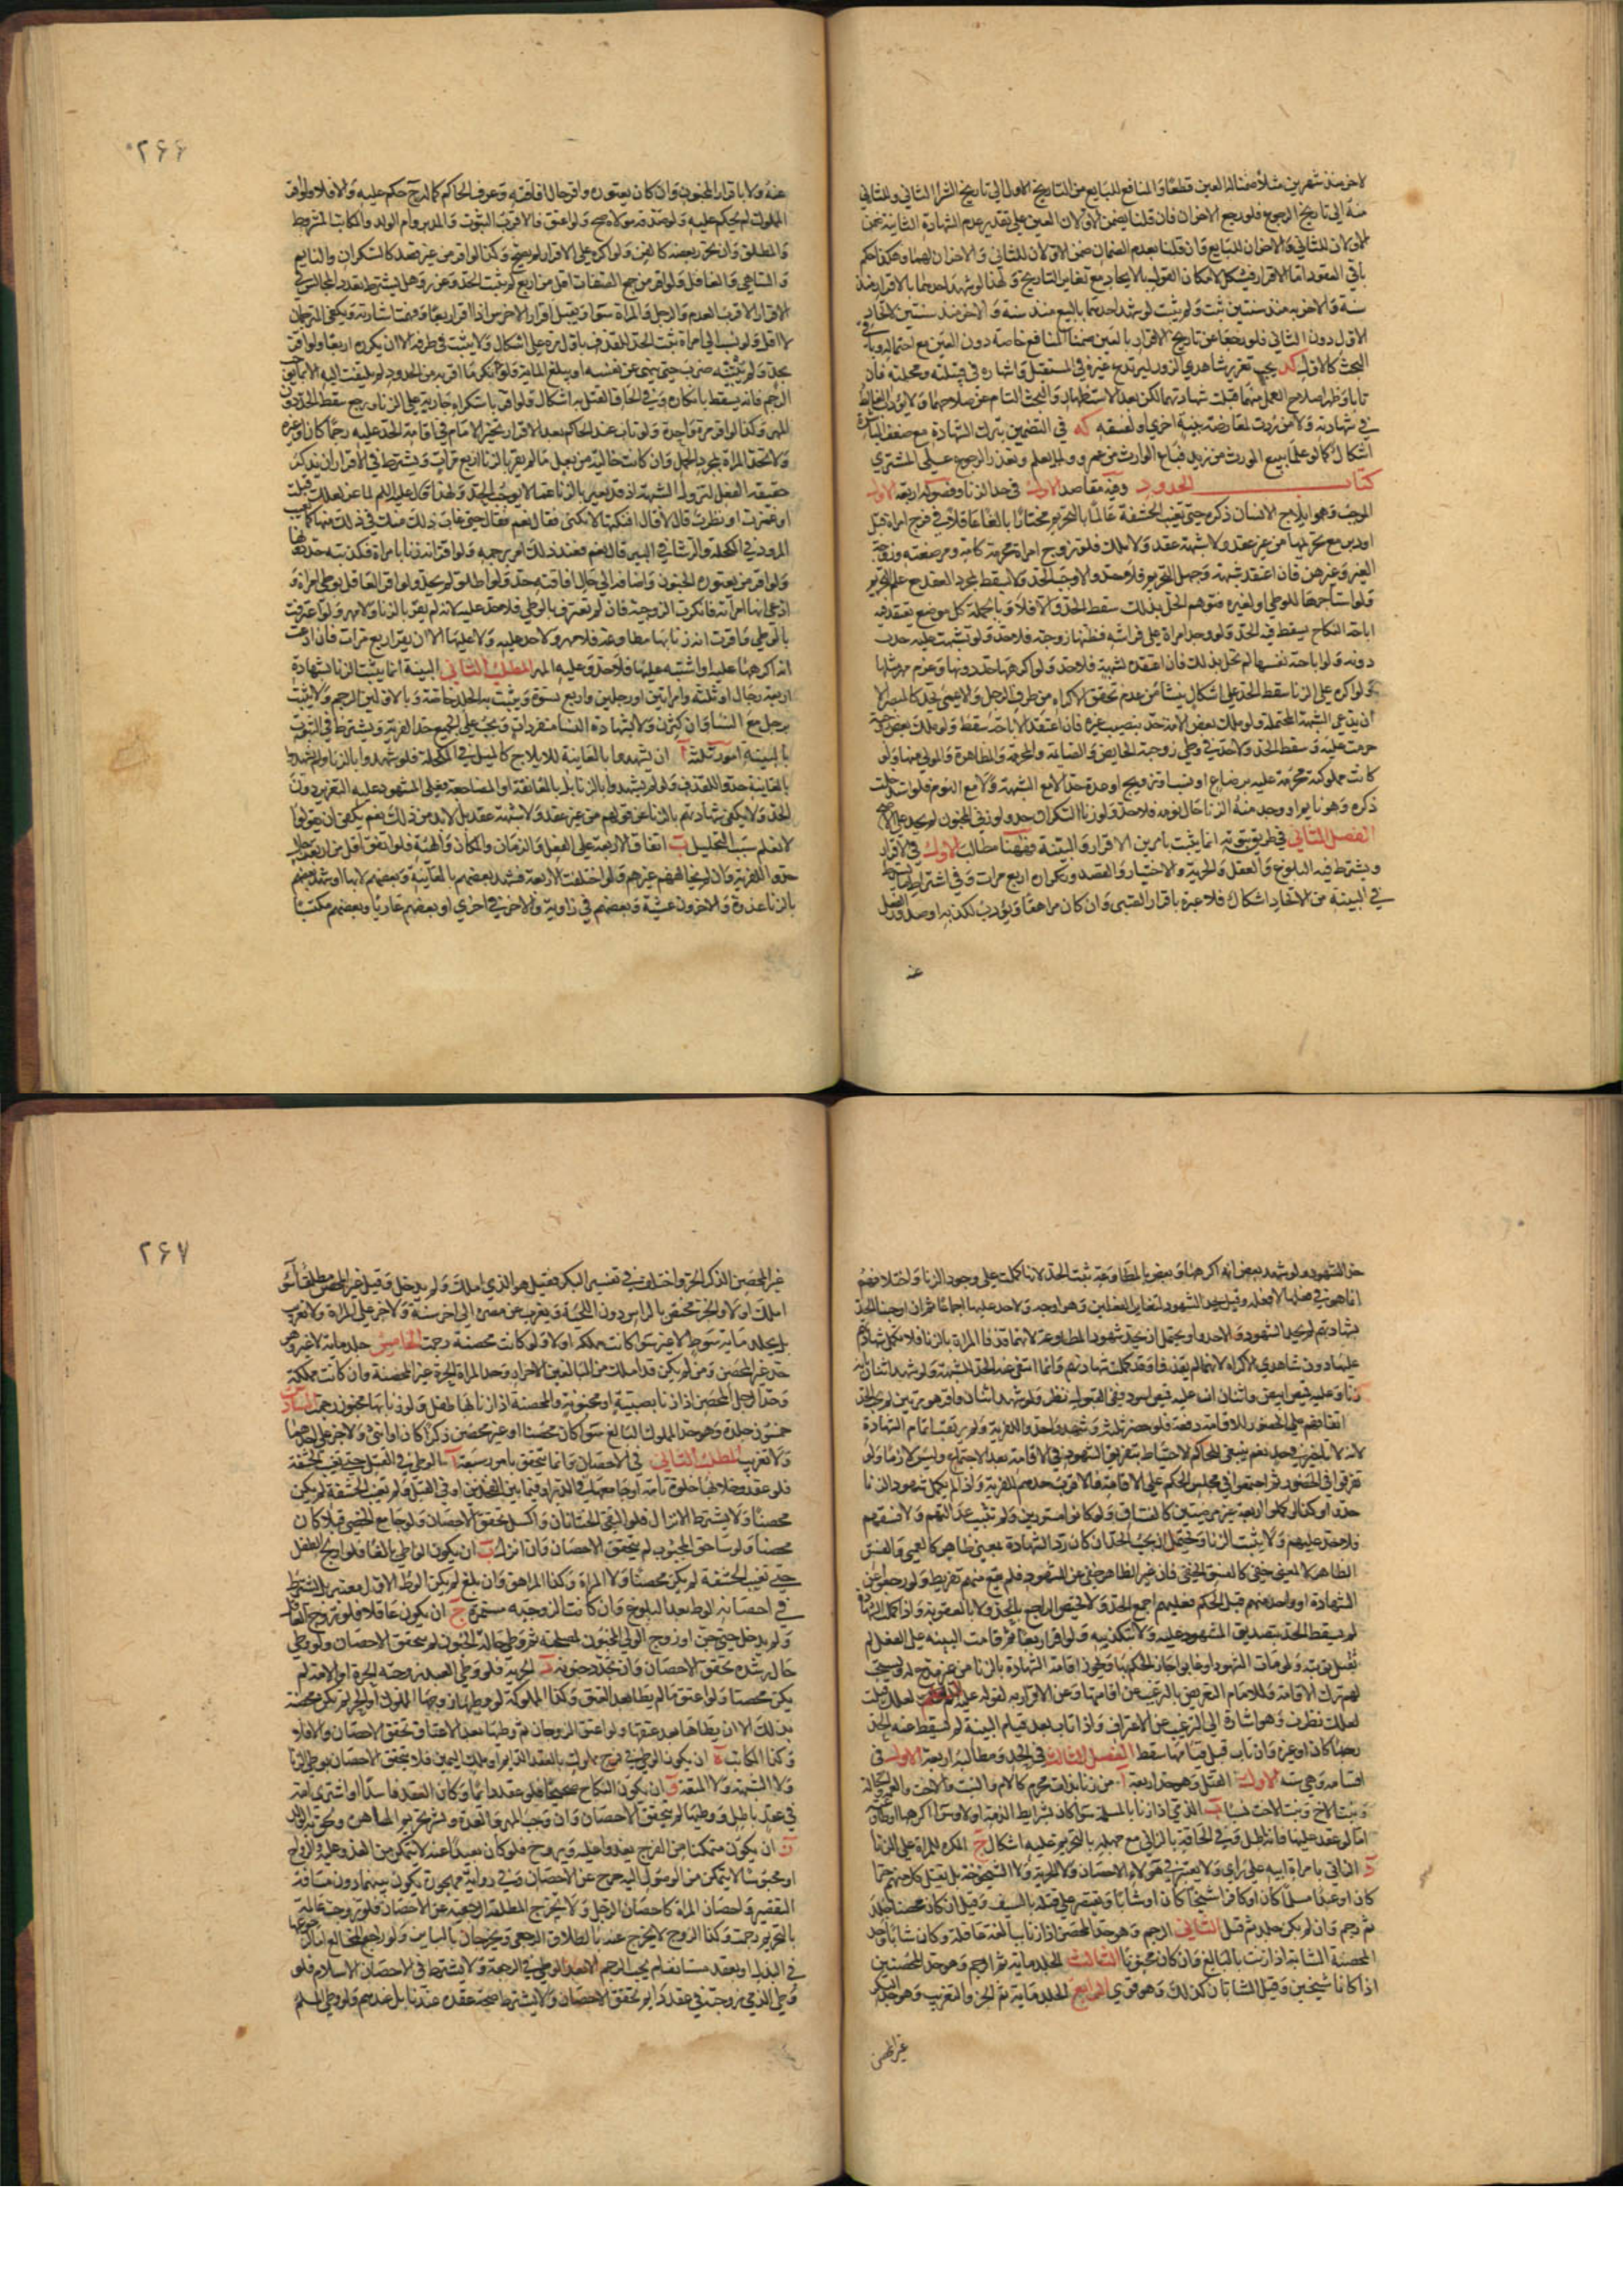 لاخر منذ شهرين مثلا ضمنا له العين قطعا والمنافع للبايع من التاريخ الاول الى تاريخ الشرا الثاني وللثاني
منه الى تاريخ الرجوع فلو رجع الاخران فان قلنا يضمن الاولان العين على تقدير عدم الشهادة الثانية ضمن
الاولان للثاني والاخران للبايع وان قلنا بعدم الضمان ضمن الاولان للثاني والاخران لهما وهكذا حكم
باقي العقود اما الاقرار فيشكل لامكان القول بالايجاد مع تغاير التاريخ ولهذا لو شهد احدهما بالاقرار منذ
سنة والاخر به منذ سنتين ثبت ولم يثبت لو شهد احدهما بالبيع منذ سنة والاخر منذ سنتين لاتحاد
الاول دون الثاني فلو رجعا عن تاريخ الاقرار بالعين ضمنا المنافع خاصة دون العين مع احتماله وباقي
البحث كالاول كد يجب تعزير شاهدي الزور ليرتدع غيره في المستقبل واشهاره في قبيلته ومحلته فان
تابا وظهر اصلاح العمل منهما قبلت شهادتهما لكن بعد الاستظهار والبحث التام عن صلاحهما ولا يؤدب الغالط
في شهادته ولا من ردت لمعارضة بينة اخري او لفسقه كه في التضمين بترك الشهادة مع ضعف المباشرة
اشكال كما لو علما ببيع المورث من زيد فباع الوارث من عمرو ولما يعلم وتعذر الرجوع على المشتري
كتاب الحدود وفيه مقاصد الاول في حد الزنا وفصوله اربعة الاول
الموجب وهو ايلاج الانسان ذكره حتى تغيب الحشفة عالما بالتحريم مختارا بالغا عاقلا في فرج امراة قبل
او دبر مع تحريمها من غير عقد ولا شبهة عقد ولا ملك فلو تزوج امراة محرمة كامه ومرضعته وزوجة
الغير وغيرهن فان اعتقد شبهة وجهل التحريم فلا حد والا وجب الحد ولا يسقط بمجرد العقد مع علم التحريم
ولو استاجرها للوطي او لغيره فتوهم الحل بذلك سقط الحد والا فلا وبالجملة كل موضع يعتقد فيه
اباحة النكاح يسقط فيه الحد ولو وجد امراة على فراشه فظنها زوجته فلا حد ولو تشبهت عليه حدت
دونه ولو اباحته نفسها لم تحل بذلك فان اعتقده لشبهة فلا حد ولو اكرهها حد دونها وغرم مهر مثلها
ولو اكره على الزنا سقط الحد على اشكال ينشا من عدم تحقق الاكراه من طرف الرجل والاعمى يحد كالمبصر الا
ان يدعي الشبهة المحتملة ولو ملك بعض الامة حد بنصيب غيره فان اعتقد الاباحة سقط ولو ملك بعض زوجته
حرمت عليه وسقط الحد ولا حد في وطي زوجته الحايض والصايمة والمحرمة والمظاهرة والمولي منها ولو
كانت مملوكته محرمة عليه برضاع او نسب او تزويج او عدة حد الا مع الشبهة ولا مع النوم فلو استدخلت
ذكره وهو نايم او وجد منه الزنا حال نومه فلا حد ولو زنا السكران حد ولو زنى المجنون لم يحد على الاصح
الفصل الثاني في طريق ثبوته انما يثبت بامرين الاقرار والبينة فههنا مطالب الاول في الاقرار
ويشترط فيه البلوغ والعقل والحرية والاختيار والقصد وتكراره اربع مرات وفي اشتراط مايشترط
في البينة من الاتحاد اشكال فلا عبرة باقرار الصبي وان كان مراهقا ويؤدب لكذبه او صدور الفعل
عنه
٢۶۶
عنه ولا باقرار المجنون وان كان يعتوره واقر حال افاقته وعرف الحاكم كماله ح حكم عليه والا فلا ولو اقر
المملوك لم يحكم عليه ولو صدقه مولاه صح ولو اعتق فالاقرب الثبوت والمدبر وام الولد والمكاتب المشروط
والمطلق وان تحرر بعضه كالقن ولو اكره على الاقرار لم يصح وكذا لو اقر من غير قصد كالسكران والنايم
والساهي والغافل ولو اقر من جمع الصفات اقل من اربع لم يثبت الحد وعزر وهل يشترط تعدد المجالس في
الاقرار الاقرب العدم والرجل والمراة سوا ويقبل اقرار الاخرس اذا اقر اربعا وفهمت اشارته ويكفي المترجمان
لا اقل ولو نسب الى امراة ثبت الحد للقذف باول مرة على اشكال ولا يثبت في طرفه الا ان يكرره اربعا ولو اقر
بحد ولم يبينه ضرب حتى ينهى عن نفسه او يبلغ الماية ولو انكر ما اقر به من الحدود لم يلتفت اليه الا بما يوجب
الرجم فانه يسقط بانكاره وفي الحاق القتل به اشكال ولو اقر باستكراه جارية على الزنا ورجع سقط الحد دون
المهر وكذا لو اقر مرة واحدة ولو تاب عند الحاكم بعد الاقرار تخير الامام في اقامة الحد عليه رجما كان او غيره
ولا تحد المراة بمجرد الحمل وان كانت خالية من بعل ما لم يقر بالزنا اربع مرات ويشترط في الاقرار ان يذكر
حقيقة الفعل لتزول الشبهة اذ قد يعبر بالزنا عما لا يوجب الحد ولهذا قال عليه السلم لماعز لعلك قبلت
او غمزت او نظرت قال لا قال افنكتها لا تكنى فقال نعم فقال حتى غاب ذلك منك في ذلك منها كما يغيب
المرود في المكحلة والرشا في البير قال نعم فعند ذلك امر برجمه ولو اقر انه زنا بامراة فكذبته حد دونها
ولو اقر من يعتوره الجنون واضافه الى حال افاقته حد ولو اطلق لم يحد ولو اقر العاقل بوطي امراة و
ادعى انها امراته فانكرت الزوجية فان لم تعترف بالوطي فلا حد عليه لانه لم يقر بالزنا ولا مهر ولو اعترفت
بالوطي واقرت انه زنا بها مطاوعة فلا مهر ولا حد عليه ولا عليها الا ان يقر اربع مرات فان ادعت
انه اكرهها عليه او اشتبه عليها فلا حد وعليه المهر المطلب الثاني البينة انما يثبت الزنا بشهادة
اربعة رجال او ثلثة وامراتين او رجلين واربع نسوة ويثبت به الجلد خاصة وبالاولين الرجم ولا يثبت
برجل مع النسا وان كثرن ولا بشهادة النسا منفردات ويجب على الجميع حد الفرية ويشترط في الثبوت
بالبينة امور ثلثة آ ان يشهدوا بالمعاينة للايلاج كالميل في المكحلة فلو شهدوا بالزنا ولم يشهدوا
بالمعاينة حدوا للقذف ولو لم يشهدوا بالزنا بل بالمعانقة او المضاجعة فعلى المشهود عليه التعزير دون
الحد ولا يكفي شهادتهم بالزنا عن قولهم من غير عقد ولا شبهة عقد بل لا بد من ذلك نعم يكفي ان يقولوا
لا نعلم سبب التحليل ب اتفاق الاربعة على الفعل والزمان والمكان والهيئة فلو اتفق اقل من اربعة
حدوا للفرية وان لم يخالفهم غيرهم ولو اختلفت الاربعة فشهد بعضهم بالمعاينة وبعضهم لا بها او شهد بعضهم
بالزنا غدوة والاخرون عشية وبعضهم في زاوية والاخر في اخري او بعضهم عاريا وبعضهم مكتسيا
حد الشهود ولو شهد بعض انه اكرهها وبعض بالمطاوعة ثبت الحد لانها كملت على وجود الزنا واختلافهم
انما هو في فعلها لا فعله وقيل يحد الشهود لتغاير الفعلين وهو اوجه ولا حد عليها اجماعا ثم ان اوجبنا الحد
بشهادتهم لم يحد الشهود والا حدوا ويحتمل ان يحد شهود المطاوعة لانهما قذفا المراة بالزنا فلا تكمل شهادتهم
عليها دون شاهدي الاكراه لانهما لم يقذفا وقد كملت شهادتهم وانما انتفى عنه الحد للشبهة ولو شهد اثنان انه
زنا وعليه قميص ابيض واثنان ان عليه قميص اسود ففي القبول نظر ولو شهد اثنان واقر هو مرتين لم يجب الحد
اتفاقهم على الحضور للاقامة دفعة فلو حضر ثلثة وشهدوا حدوا للفرية ولم يرتقب اتمام الشهادة
لانه لا تاخير في حد نعم ينبغي للحاكم الاحتياط بتفريق الشهود في الاقامة بعد الاجتماع وليس لازما ولو
تفرقوا في الحضور ثم اجتمعوا في مجلس الحكم على الاقامة فالاقرب حدهم للفرية واذا لم يكمل شهود الزنا
حدوا وكذا لو كملوا اربعة غير مرضيين كالفساق ولو كانوا مستورين ولم تثبت عدالتهم ولا فسقهم
فلا حد عليهم ولا يثبت الزنا ويحتمل ان يجب الحد ان كان رد الشهادة لمعنى ظاهر كالعمى والفسق
الظاهر لا لمعنى خفي كالفسق الخفي فان غير الظاهر خفي عن الشهود فلم يقع منهم تفريط ولو رجعوا عن
الشهادة او واحد منهم قبل الحكم فعليهم اجمع الحد ولا يختص الراجع بالحد ولا بالعقوبة واذا كملت الشهادة
لم يسقط الحد بتصديق المشهود عليه ولا بتكذيبه ولو اقر اربعا ثم قامت البينة على الفعل لم
تقبل توبته ولو مات الشهود او غابوا جاز الحكم بها ويجوز اقامة الشهادة بالزنا من غير مدع له ويستحب
لهم ترك الاقامة وللامام التعريض بالترغيب عن اقامتها وعن الاقرار به لقوله لعلك قبلت
لعلك نظرت وهو اشارة الى الترغيب عن الاعتراف واذا تاب بعد قيام البينة لم يسقط عنه الحد
رجما كان او غيره وان تاب قبل قيامها سقط الفصل الثالث في الحد ومطالبه اربعة الاول في
اقسامه وهي ستة الاول القتل وهو حد اربعة آ من زنا بذات محرم كالام والبنت والاخت والعمة والخالة
وبنت الاخ وبنت الاخت نسبا ب الذمي اذا زنا بالمسلمة سوا كان بشرايط الذمة او لا وسوا اكرهها او طاوعته
اما لو عقد عليها فانه باطل وفي الحاقه بالزاني مع جهله بالتحريم عليه اشكال ج المكره للمراة على الزنا
د الزاني بامراة ابيه على راي ولا يعتبر في هؤلاء الاحصان ولا الحرية ولا الشيخوخة بل يقتل كل منهم حرا
كان او عبدا مسلما كان او كافرا شيخا كان او شابا ويقتصر على قتله بالسيف وقيل ان كان محصنا جلد
ثم رجم وان لم يكن جلد ثم قتل الثاني الرجم وهو حد المحصن اذا زنا ببالغة عاقلة وكان شابا وحد
المحصنة الشابة اذا زنت بالبالغ وان كان مجنونا الثالث الجلد ماية ثم الرجم وهو حد المحصنين
اذا كانا شيخين وقيل الشابان كذلك وهو قوي الرابع الجلد ماية ثم الجز والتغريب وهو حد البكر
غير المحصن
٢۶٧
غير المحصن الذكر الحر واختلف في تفسير البكر فقيل هو الذي املك ولم يدخل وقيل غير المحصن مطلقا سوا
املك او لا والجز مختص بالراس دون اللحية ويغرب عن مصره الى اخر سنة ولا جز على المراة ولا تغريب
بل يجلد ماية سوط لا غير سوا كانت مملكة او لا ولو كانت محصنة رجمت الخامس جلد ماية لا غير وهو
حد غير المحصن ومن لم يكن قد املك من البالغين الاحرار وحد المراة الحرة غير المحصنة وان كانت مملكة
وحد الرجل المحصن اذا زنا بصبية او مجنونة والمحصنة اذا زنا بها طفل ولو زنا بها مجنون رجمت السادس
خمسون جلدة وهو حد المملوك البالغ سوا كان محصنا او غير محصن ذكرا كان او انثى ولا جز على احدهما
ولا تغريب المطلب الثاني في الاحصان وانما يتحقق بامور سبعة آ الوطي في القبل حتى تغيب الحشفة
فلو عقد وخلا بها خلوة تامة او جامعها في الدبر او فيما بين الفخذين او في القبل ولم تغيب الحشفة لم يكن
محصنا ولا يشترط الانزال فلو التقى الختانان واكسل تحقق الاحصان ولو جامع الخصي قبلا كان
محصنا ولو ساحق المجبوب لم يتحقق الاحصان وان انزل ب ان يكون الواطي بالغا فلو اولج الطفل
حتى تغيب الحشفة لم يكن محصنا ولا المراة وكذا المراهق وان بلغ لم يكن الوطي الاول معتبرا بل يشترط
في احصانه الوطي بعد البلوغ وان كانت الزوجية مستمرة ج ان يكون عاقلا فلو تزوج العاقل
ولم يدخل حتى جن او زوج الولي المجنون لمصلحته ثم وطي حالة الجنون لم يتحقق الاحصان ولو وطي
حال رشده تحقق الاحصان وان تجدد جنونه د الحرية فلو وطى العبد زوجته الحرة او الامة لم
يكن محصنا ولو اعتق ما لم يطا بعد العتق وكذا المملوكة لو وطئها زوجها المملوك او الحر لم يكن محصنة
بذلك الا ان يطاها بعد عتقها ولو اعتق الزوجان ثم وطيها بعد الاعتاق تحقق الاحصان والا فلا
وكذا المكاتب ه ان يكون الوطي في فرج مملوك بالعقد الدايم او ملك اليمين فلا يتحقق الاحصان بوطي الزنا
ولا الشبهة ولا المتعة و ان يكون النكاح صحيحا فلو عقد دايما وكان العقد فاسدا او اشترى امة
في عقد باطل ووطيها لم يتحقق الاحصان وان وجب المهر والعدة ونشر تحريم المصاهرة ولحقه الولد
ز ان يكون متمكنا من الفرج يغدو عليه ويروح فلو كان بعيدا عنه لا يتمكن من الغدو عليه والرواح
او محبوسا لا يتمكن من الوصول اليه خرج عن الاحصان وفي رواية مهجورة يكون بينهما دون مسافة
التقصير واحصان المراة كاحصان الرجل ولا يخرج المطلقة الرجعية عن الاحصان فلو تزوجت عالمة
بالتحريم رجمت وكذا الزوج لا يخرج عنه بالطلاق الرجعي ويخرجان بالباين ولو راجع المخالع اما لرجوعها
في البذل او بعقد مستانف لم يجب الرجم الا بعد الوطي في الرجعة ولا يشترط في الاحصان الاسلام فلو
وطى الذمي زوجته في عقد دايم تحقق الاحصان ولا يشترط صحة عقده عندنا بل عندهم ولو وطى المسلم